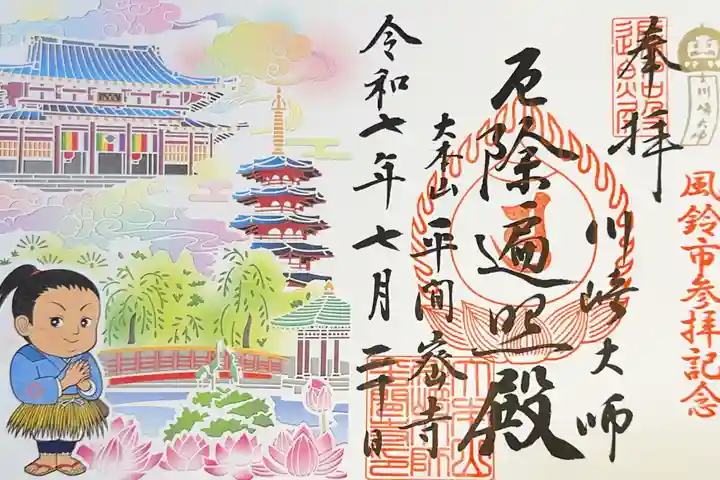 奉拝
川崎大師
風鈴市参拝記念
川崎大師
厄除遍照殿
大本山
平間寺
令和七年七月二十日